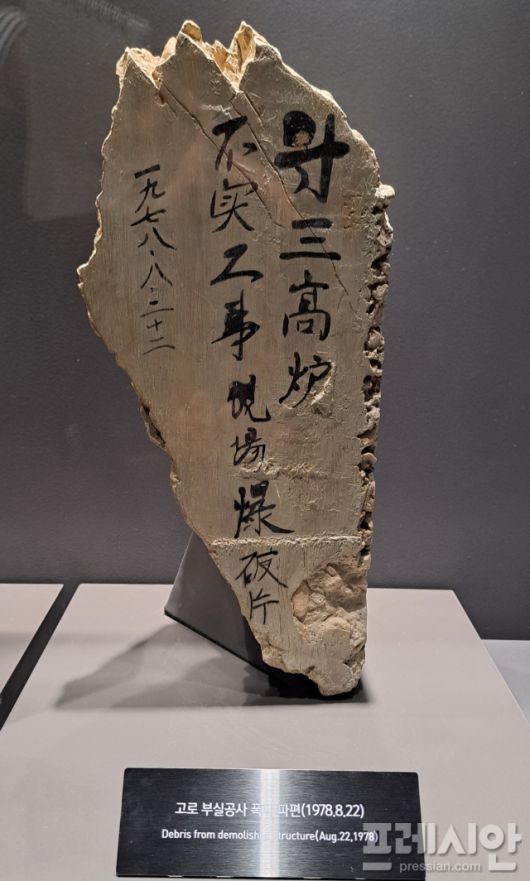 㐧三高炉
不実工事現場爆破片
一九七八.八.二十二
고로 부실공사 폭파 파편(1978.8.22)
Debris from demolished structure(Aug.22,1978)
프레시안
pressian.com